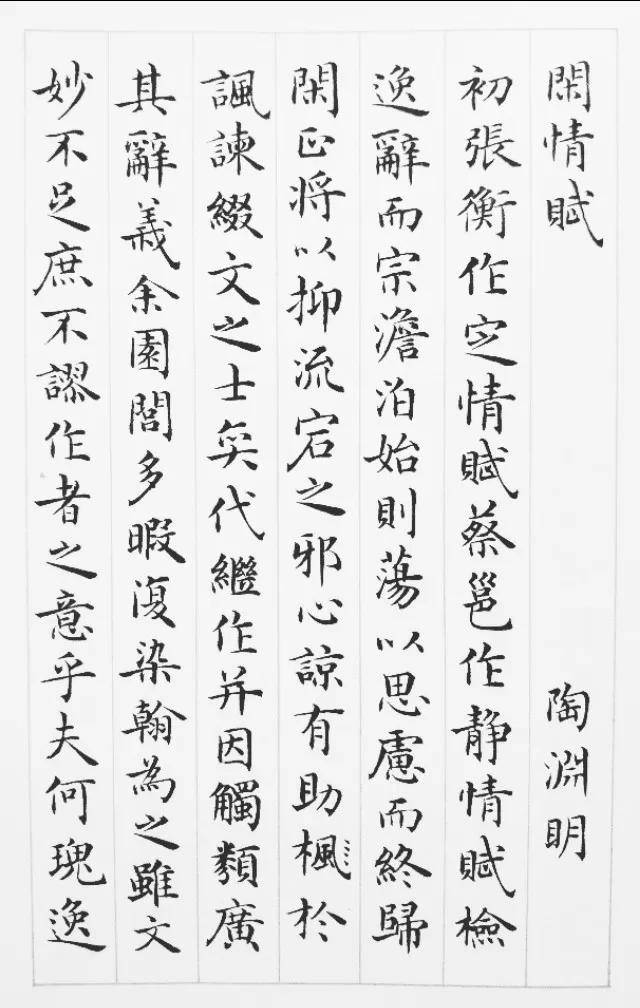 閑情賦 陶淵明
初張衡作定情賦蔡邕作靜情賦檢
逸辭而宗澹泊始則蕩以思慮而終歸
閑正将以抑流宕之邪心諒有助楓於
諷諫綴文之士奕代繼作并因觸類廣
其辭義余園閭多暇復染翰為之雖文
妙不足庶不謬作者之意乎夫何瑰逸